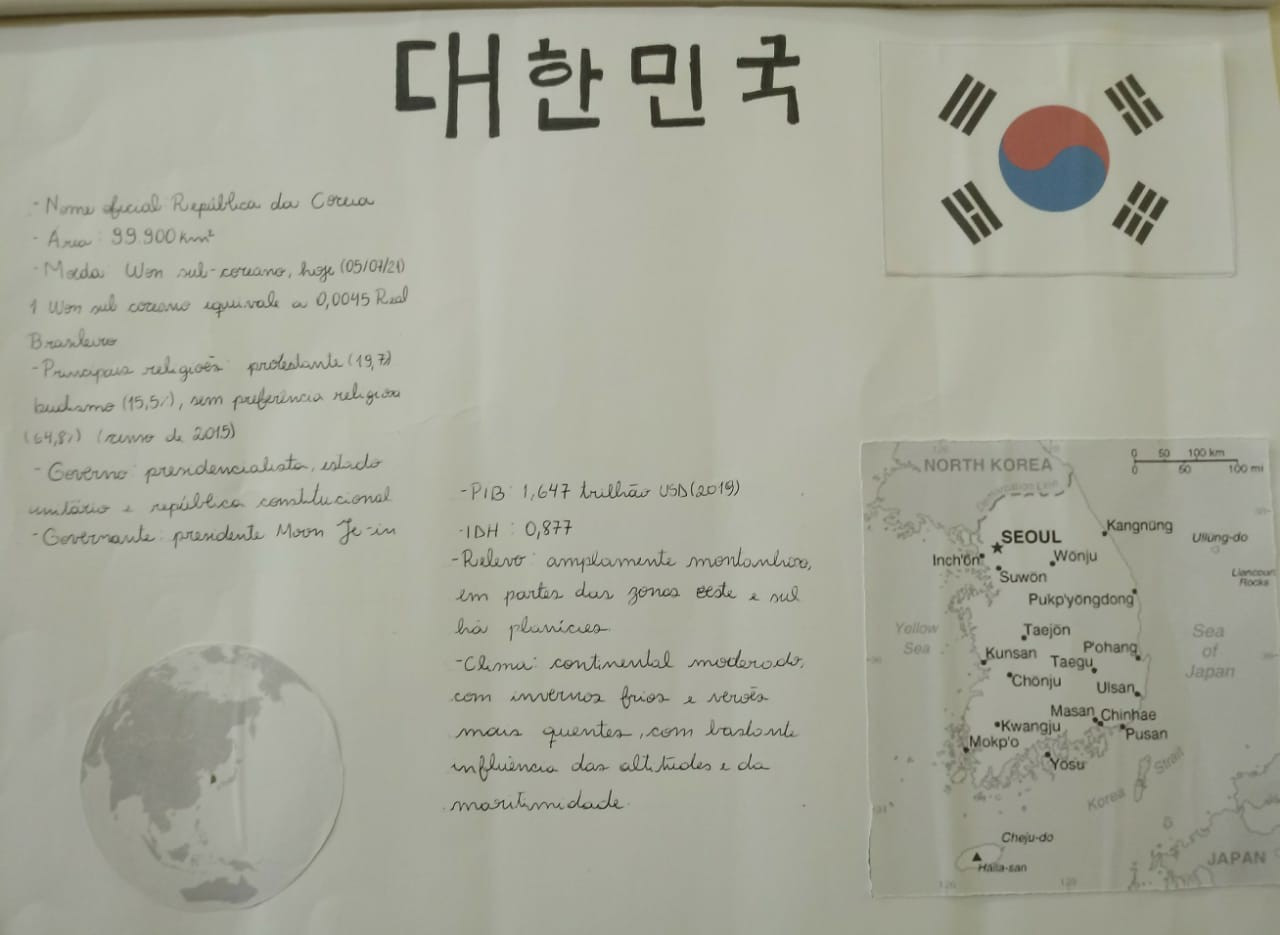 대한민국
- Nome oficial República da Coreia
- Área: 99.900 km²
- Moeda: Won sul-coreano, hoje (05/07/21)
1 Won sul coreano equivale a 0,0045 Real
Brasileiro
- Principais religiões: protestante (19,7)
budismo (15,5%), sem preferência religiosa
(64,8%) (censo de 2015)
- Governo: presidencialista, estado
unitário e república constitucional
- Governante: presidente Moon Je-in
- PIB: 1,647 trilhão USD (2019)
- IDH: 0,877
- Relevo: amplamente montanhoso,
em partes das zonas oeste e sul
há planícies.
- Clima: continental moderado,
com invernos frios e verões
mais quentes, com bastante
influência das altitudes e da
maritimidade.
0 50 100 km
0 50 100 mi
NORTH KOREA
Demarcation Line
SEOUL
Kangnŭng
Ullŭng-do
Inch'ŏn
Wŏnju
Suwŏn
Liancourt
Rocks
Pukp'yŏngdong
Yellow
Sea
Taejŏn
Sea
of
Japan
Kunsan
P'ohang
Taegu
Chŏnju
Ulsan
Masan
Chinhae
Kwangju
Pusan
Mokp'o
Yŏsu
Korea Strait
Cheju-do
Halla-san
JAPAN